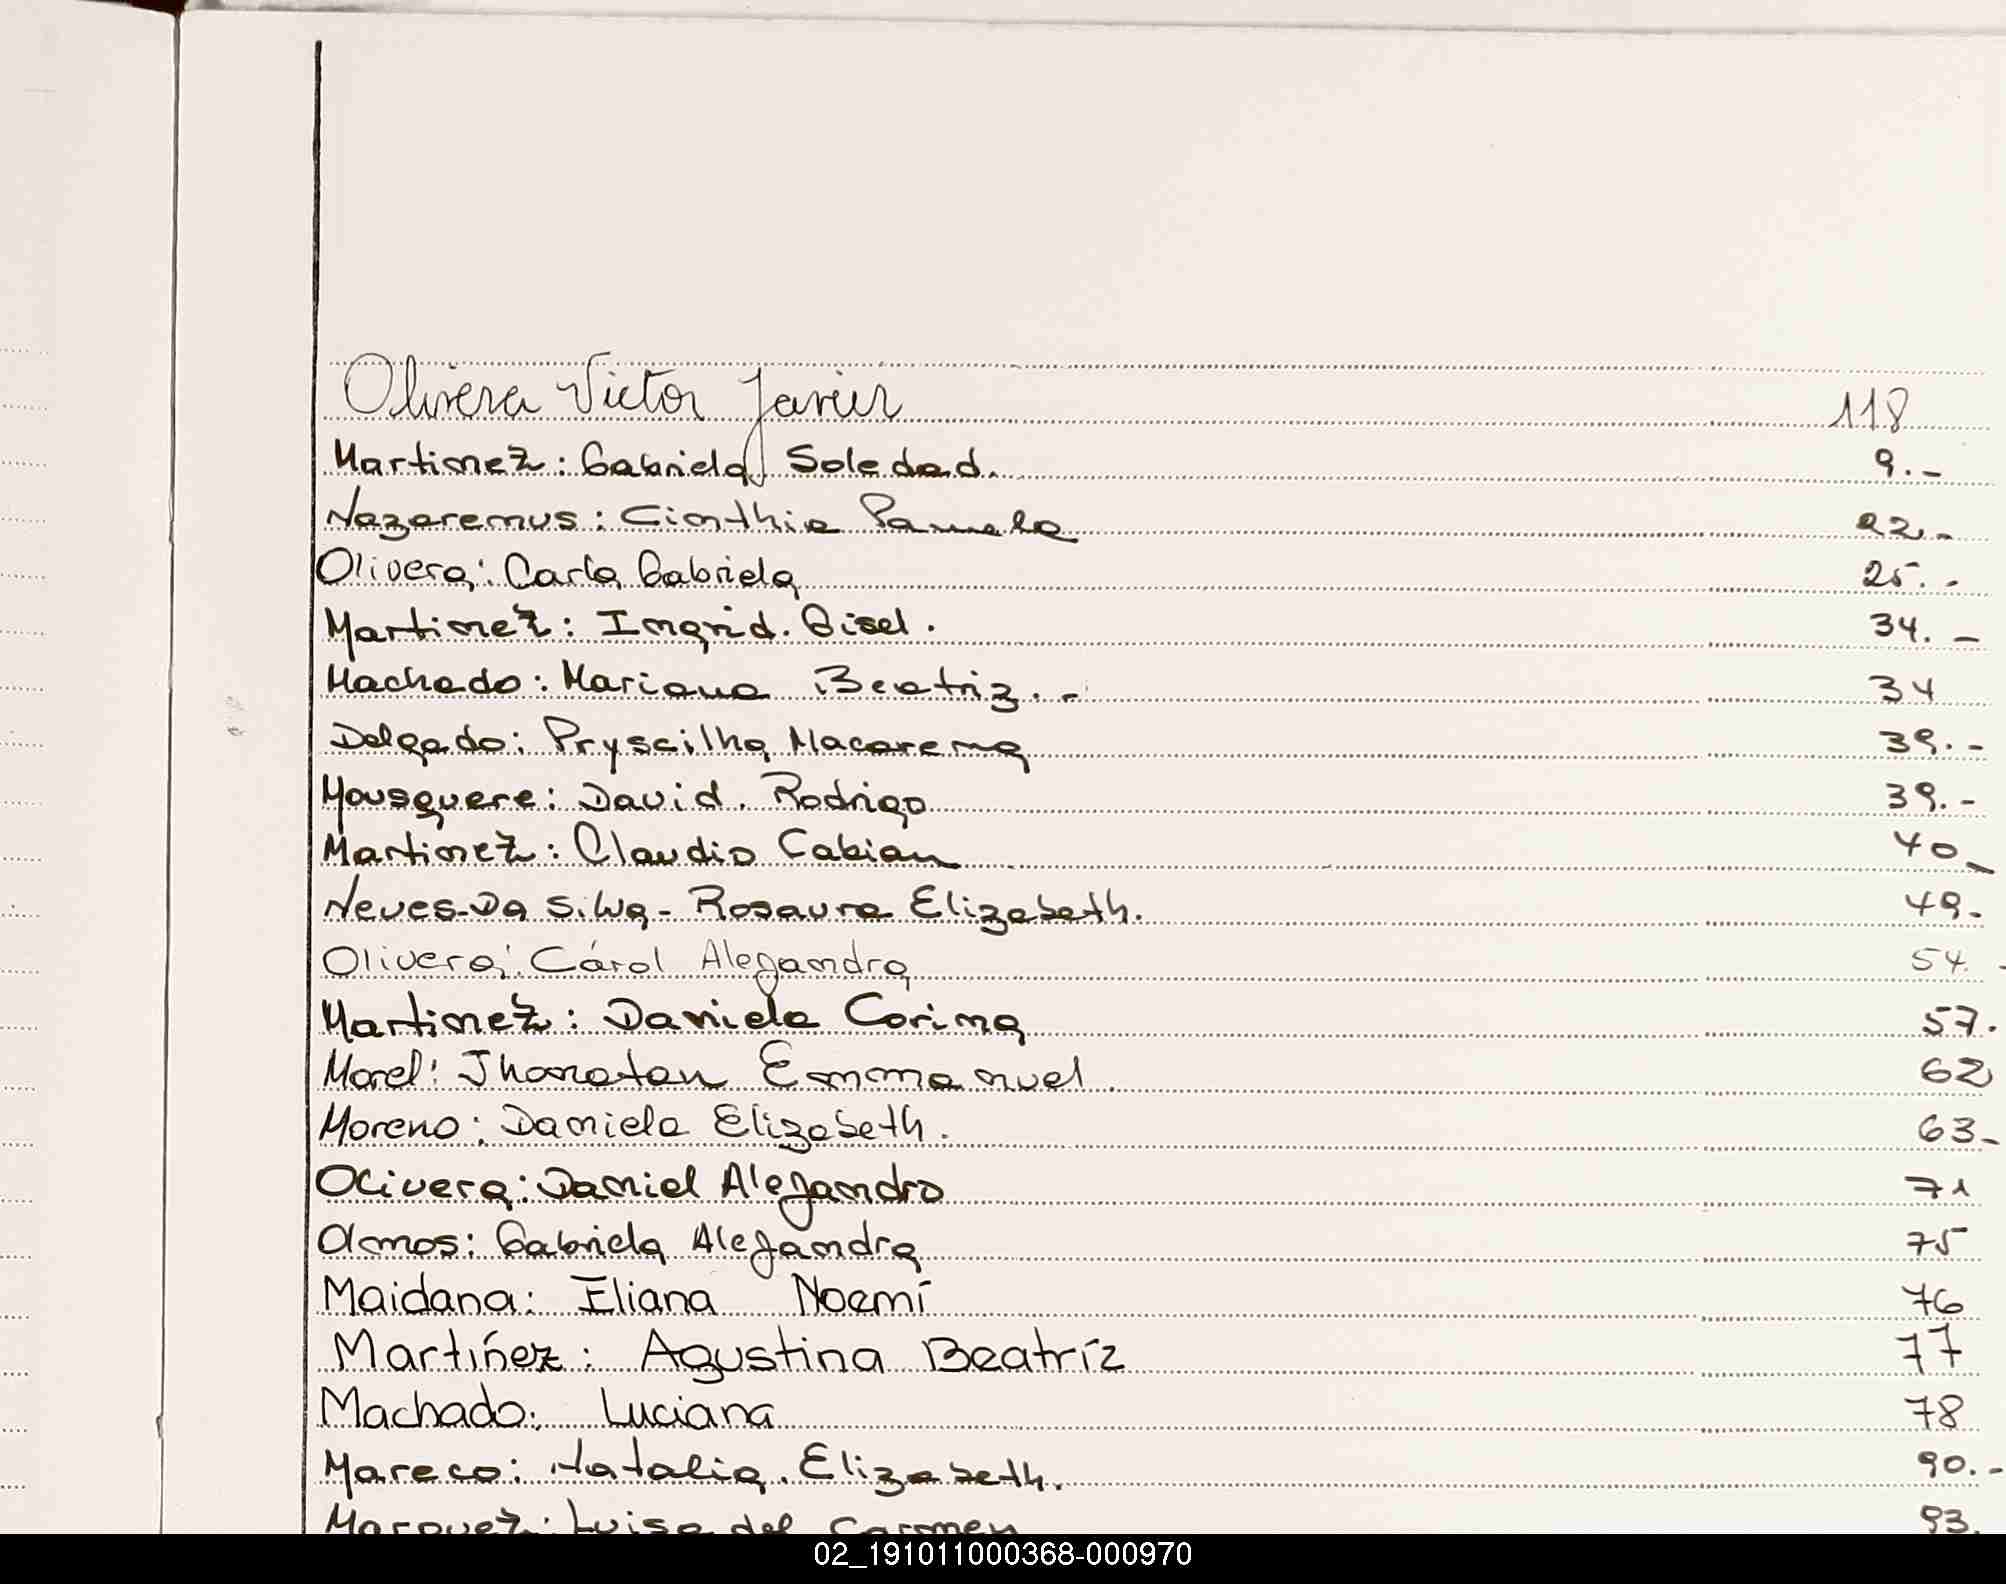 Olivera Victor Javier 118
Martinez: Gabriela Soledad. 9.-
Nazaremus: Cinthia Pamela 22.-
Olivera: Carla Gabriela 25.-
Martinez: Ingrid. Gisel. 34.-
Machado: Mariana Beatriz.- 34
Delgado: Pryscilha Macarena 39.-
Mousquere: David. Rodrigo 39.-
Martinez: Claudio Cabian 40_
Neves-Da Silva- Rosaura Elizabeth. 49.
Olivera: Cárol Alejandra 54.-
Martinez: Daniela Corina 57.
Morel: Jhonatan Emmanuel. 62
Moreno: Daniela Elizabeth. 63-
Olivera: Daniel Alejandro 71
Olmos: Gabriela Alejandra 75
Maidana: Eliana Noemí 76
Martínez: Agustina Beatríz 77
Machado: Luciana 78
Mareco: Natalia. Elizabeth. 90.-
Marquez: Luisa del Carmen 93.
02_191011000368-000970